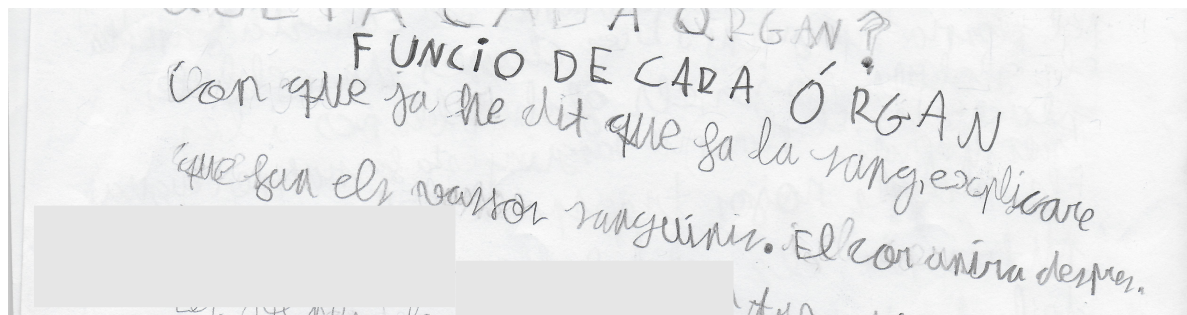 QUE FA CADA ÓRGAN?
FUNCIO DE CADA ÓRGAN
Con que ja he dit que fa la sang, explicare
que fan els vassos sanguinis. El cor anira despres.